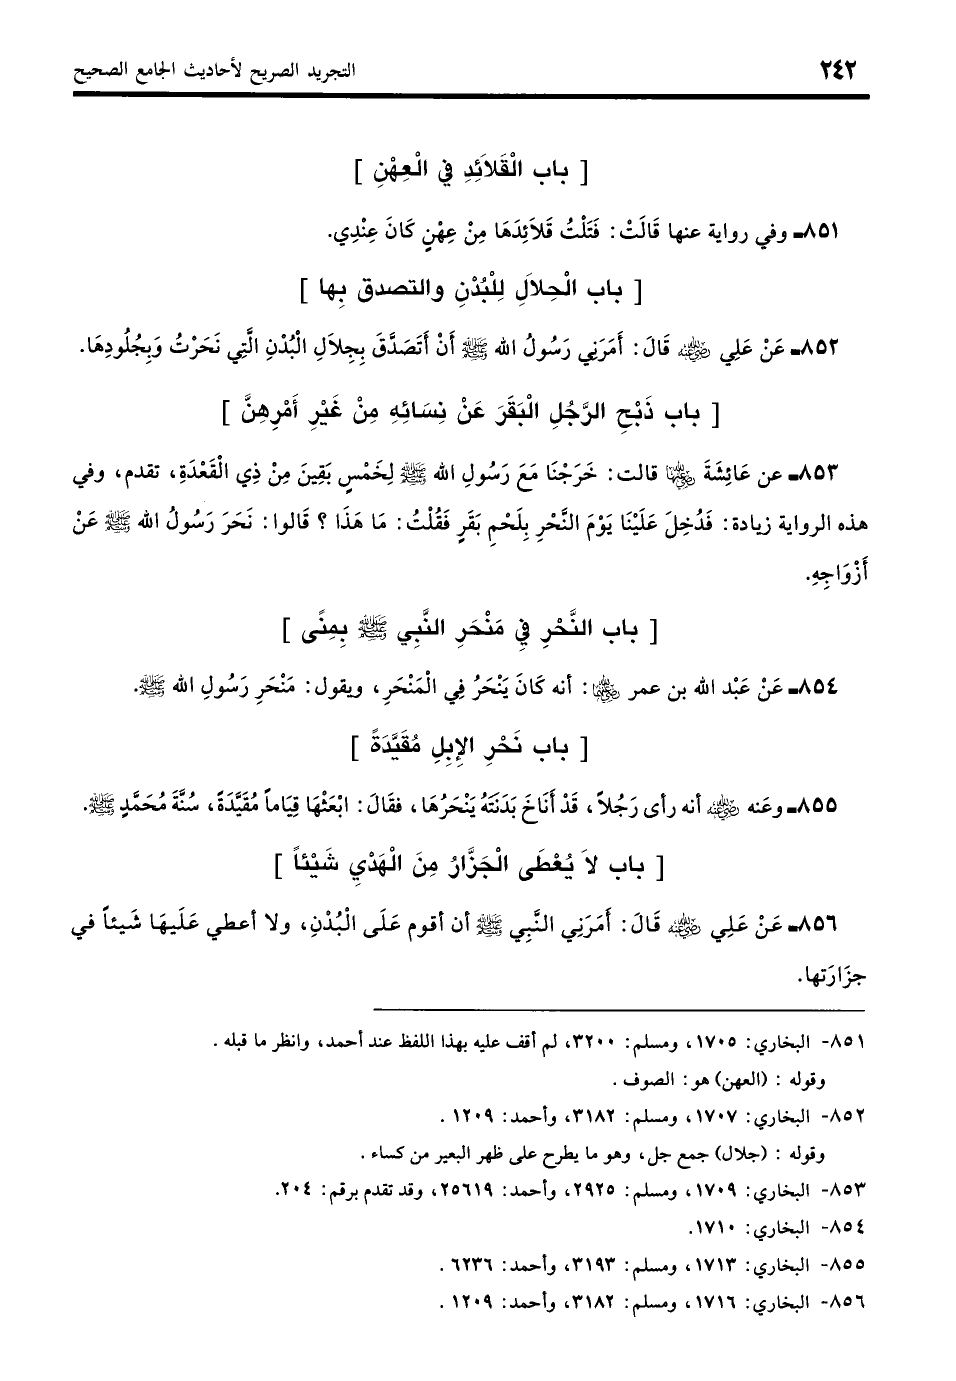 ٢٤٢ التجريد الصريح لأحاديث الجامع الصحيح
[ باب الْقَلاَئِدِ فِي الْعِهْنِ ]
٨٥١ـ وفي رواية عنها قَالَتْ: فَتَلْتُ قَلاَئِدَهَا مِنْ عِهْنٍ كَانَ عِنْدِي.
[ باب الْجِلاَلِ لِلْبُدْنِ والتصدق بِها ]
٨٥٢ـ عَنْ عَلِي ﵁ قَالَ: أَمَرَنِي رَسُولُ الله ﷺ أَنْ أَتَصَدَّقَ بِجِلاَلِ الْبُدْنِ الَّتِي نَحَرْتُ وَبِجُلُودِهَا.
[ باب ذَبْحِ الرَّجُلِ الْبَقَرَ عَنْ نِسَائِهِ مِنْ غَيْرِ أَمْرِهِنَّ ]
٨٥٣ـ عن عَائِشَةَ ﵂ قالت: خَرَجْنَا مَعَ رَسُولِ الله ﷺ لِخَمْسٍ بَقِينَ مِنْ ذِي الْقَعْدَةِ، تقدم، وفي
هذه الرواية زيادة: فَدُخِلَ عَلَيْنَا يَوْمَ النَّحْرِ بِلَحْمِ بَقَرٍ فَقُلْتُ: مَا هَذَا ؟ قَالوا: نَحَرَ رَسُولُ الله ﷺ عَنْ
أَزْوَاجِهِ.
[ باب النَّحْرِ فِي مَنْحَرِ النَّبِي ﷺ بِمِنًى ]
٨٥٤ـ عَنْ عَبْد الله بن عمر ﵄: أنه كَانَ يَنْحَرُ فِي الْمَنْحَرِ، ويقول: مَنْحَرِ رَسُولِ الله ﷺ.
[ باب نَحْرِ الإِبِلِ مُقَيَّدَةً ]
٨٥٥ـ وعَنه ﵁ أنه رأى رَجُلاً، قَدْ أَنَاخَ بَدَنَتَهُ يَنْحَرُهَا، فقَالَ: ابْعَثْهَا قِيَاماً مُقَيَّدَةً، سُنَّةَ مُحَمَّدٍ ﷺ.
[ باب لاَ يُعْطَى الْجَزَّارُ مِنَ الْهَدْيِ شَيْئاً ]
٨٥٦ـ عَنْ عَلِي ﵁ قَالَ: أَمَرَنِي النَّبِي ﷺ أن أقوم عَلَى الْبُدْنِ، ولا أعطي عَلَيهَا شَيئاً في
جزَارَتها.
٨٥١- البخاري: ١٧٠٥، ومسلم: ٣٢٠٠، لم أقف عليه بهذا اللفظ عند أحمد، وانظر ما قبله .
وقوله : (العهن) هو: الصوف .
٨٥٢- البخاري: ١٧٠٧، ومسلم: ٣١٨٢، وأحمد: ١٢٠٩ .
وقوله : (جلال) جمع جل، وهو ما يطرح على ظهر البعير من كساء .
٨٥٣- البخاري: ١٧٠٩، ومسلم: ٢٩٢٥، وأحمد: ٢٥٦١٩، وقد تقدم برقم: ٢٠٤.
٨٥٤- البخاري: ١٧١٠.
٨٥٥- البخاري: ١٧١٣، ومسلم: ٣١٩٣، وأحمد: ٦٢٣٦ .
٨٥٦- البخاري: ١٧١٦، ومسلم: ٣١٨٢، وأحمد: ١٢٠٩ .